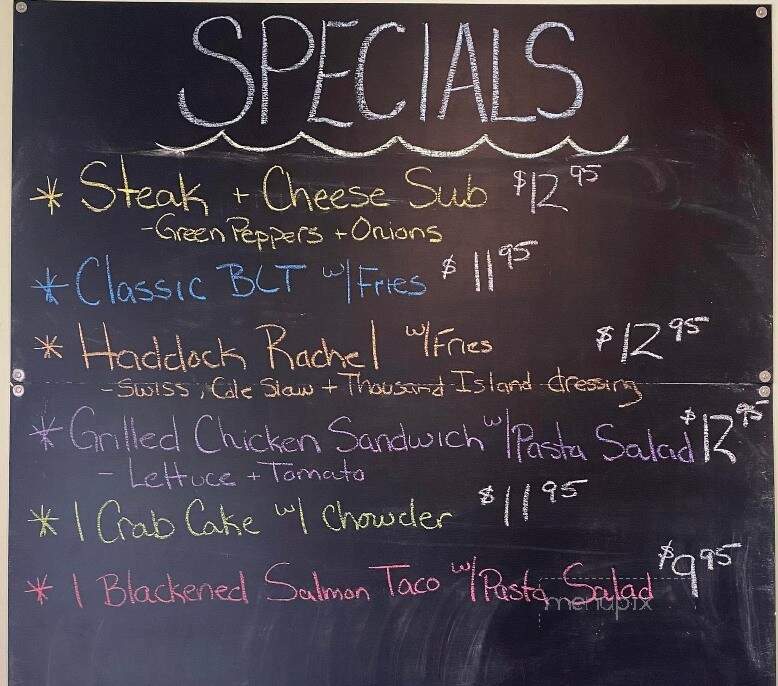 SPECIALS
* Steak + Cheese Sub $12.95
-Green Peppers + Onions
* Classic BLT w/Fries $11.95
* Haddock Rachel w/Fries $12.95
- Swiss, Cole Slaw + Thousand Island dressing
* Grilled Chicken Sandwich w/Pasta Salad $12.95
- Lettuce + Tomato
* 1 Crab Cake w/ Chowder $11.95
* 1 Blackened Salmon Taco w/Pasta Salad $9.95
menupix